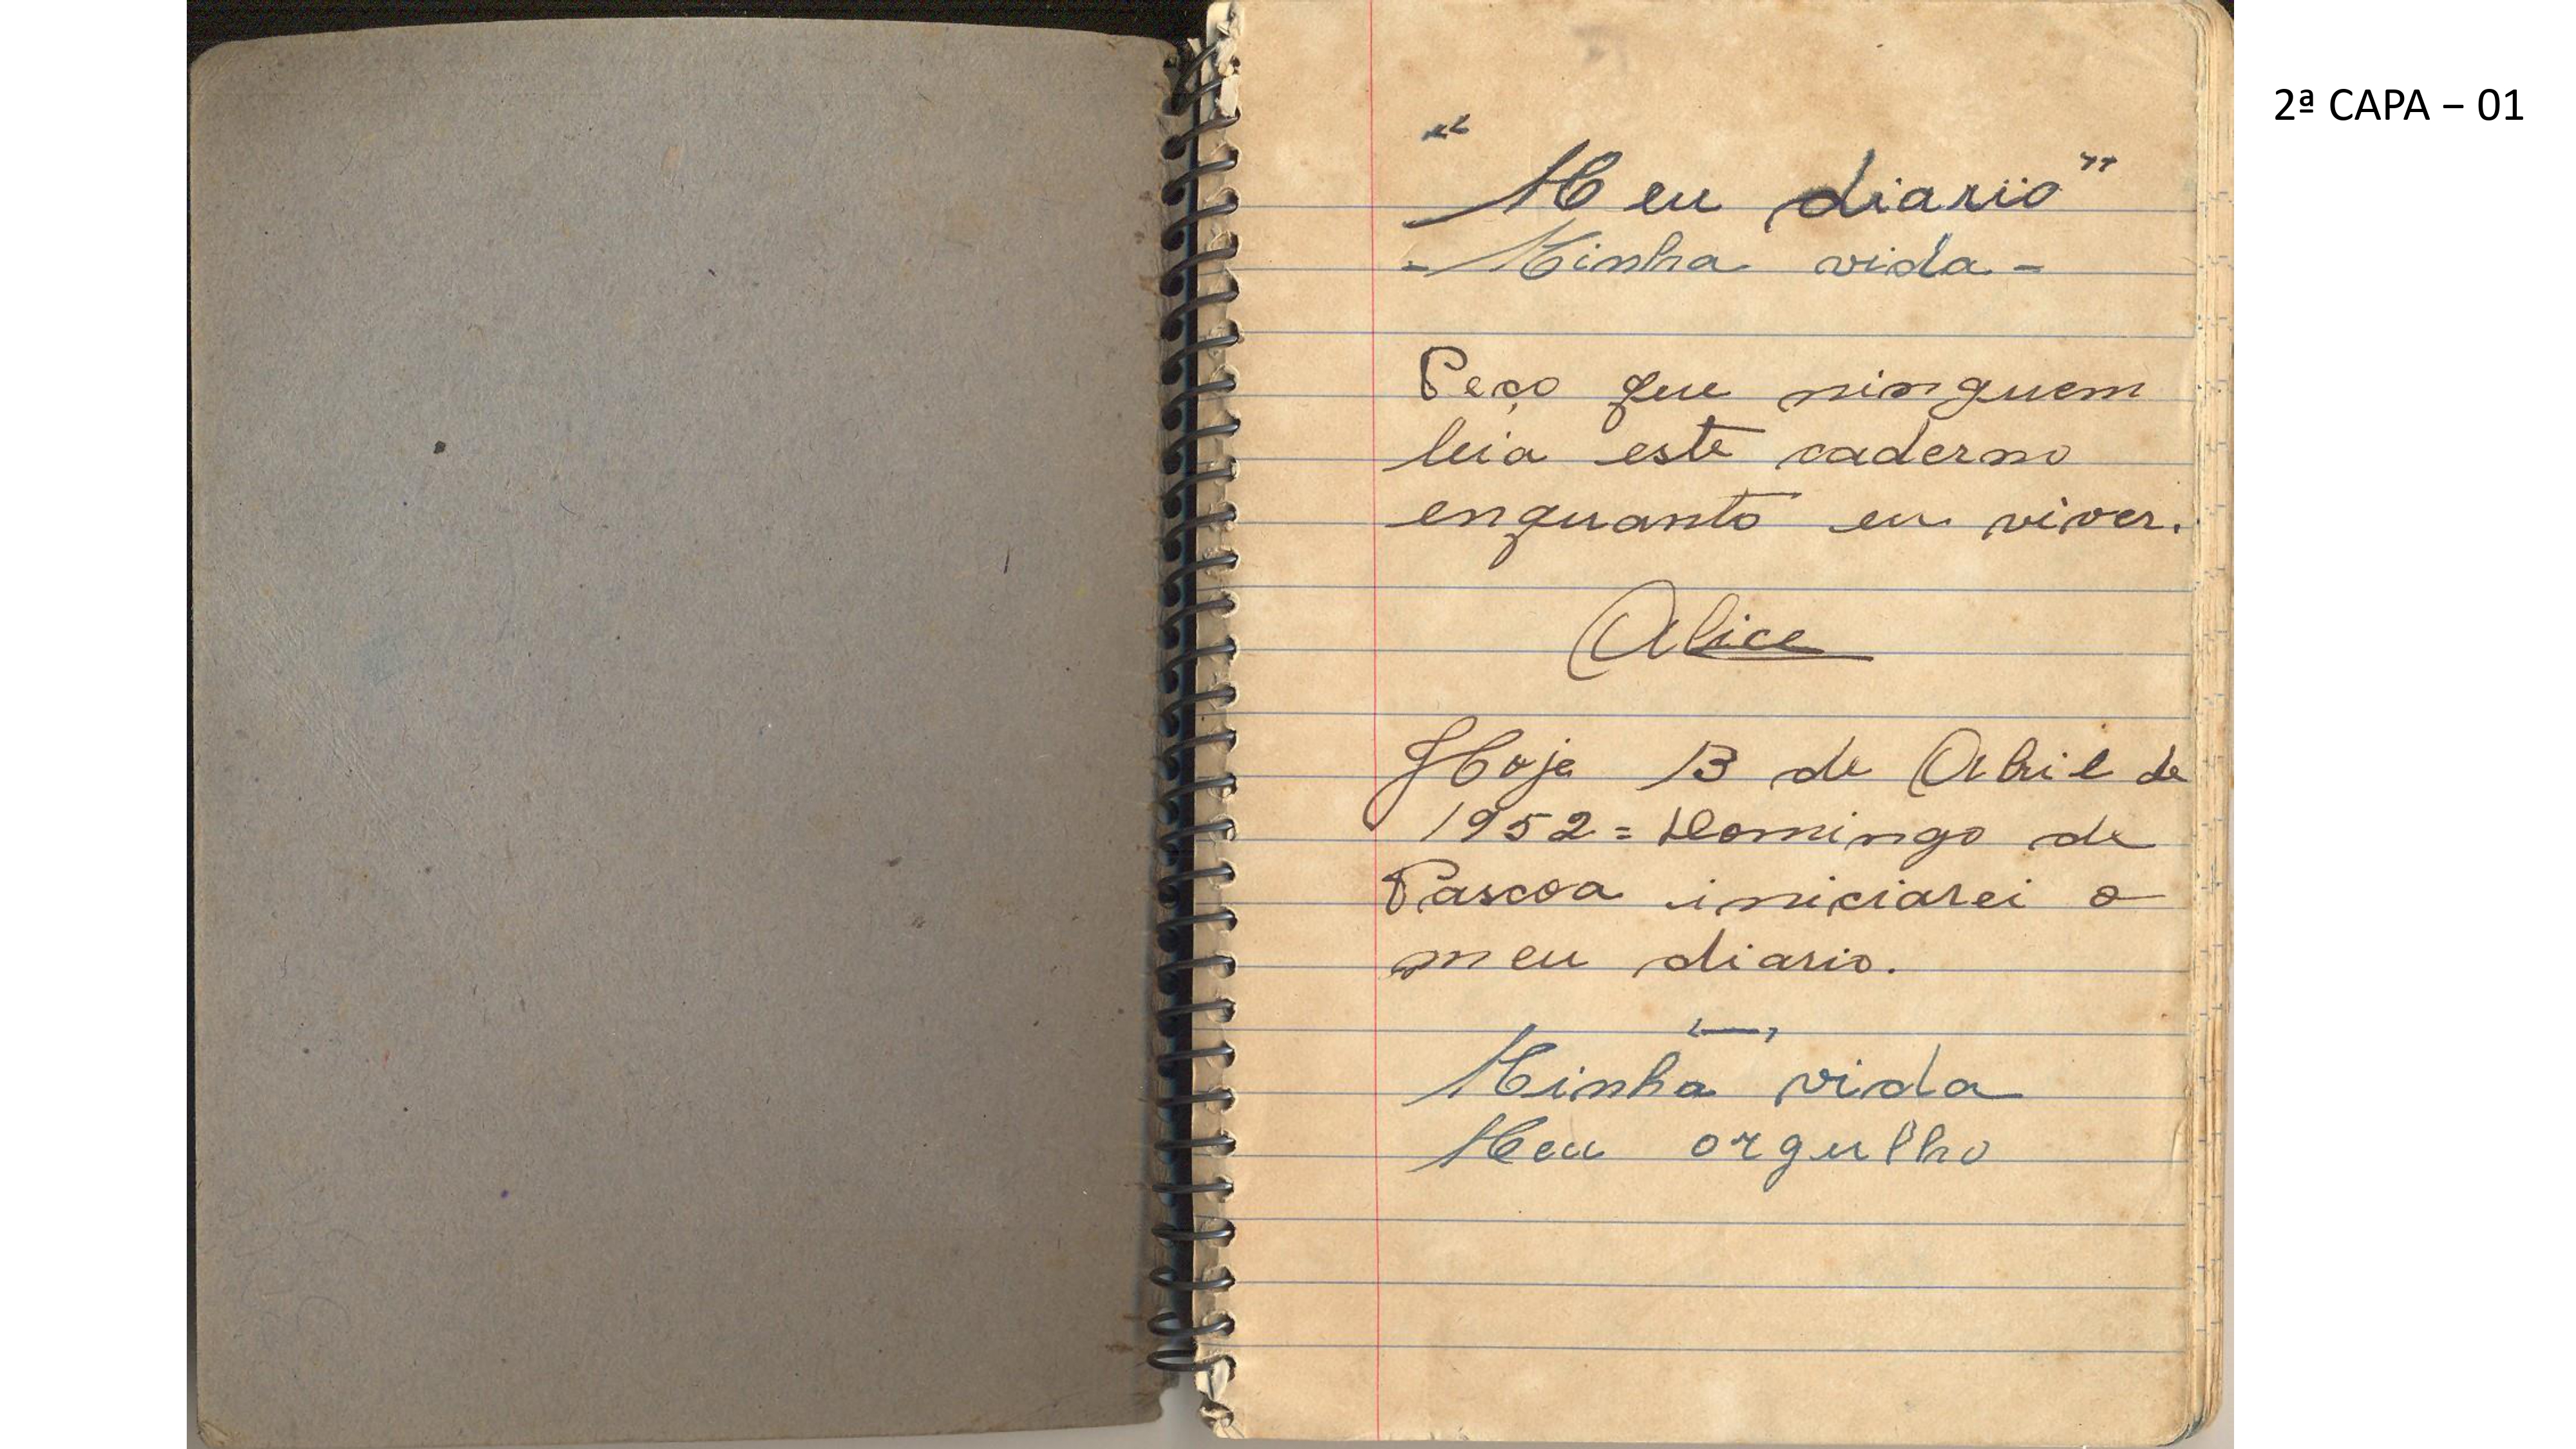 "Meu diario"
- Minha vida -
Peço que ninguem
leia este caderno
enquanto eu viver.
Alice
Hoje 13 de Abril de
1952 = Domingo de
Pascoa iniciarei o
meu diario.
Minha vida
Meu orgulho
2ª CAPA – 01